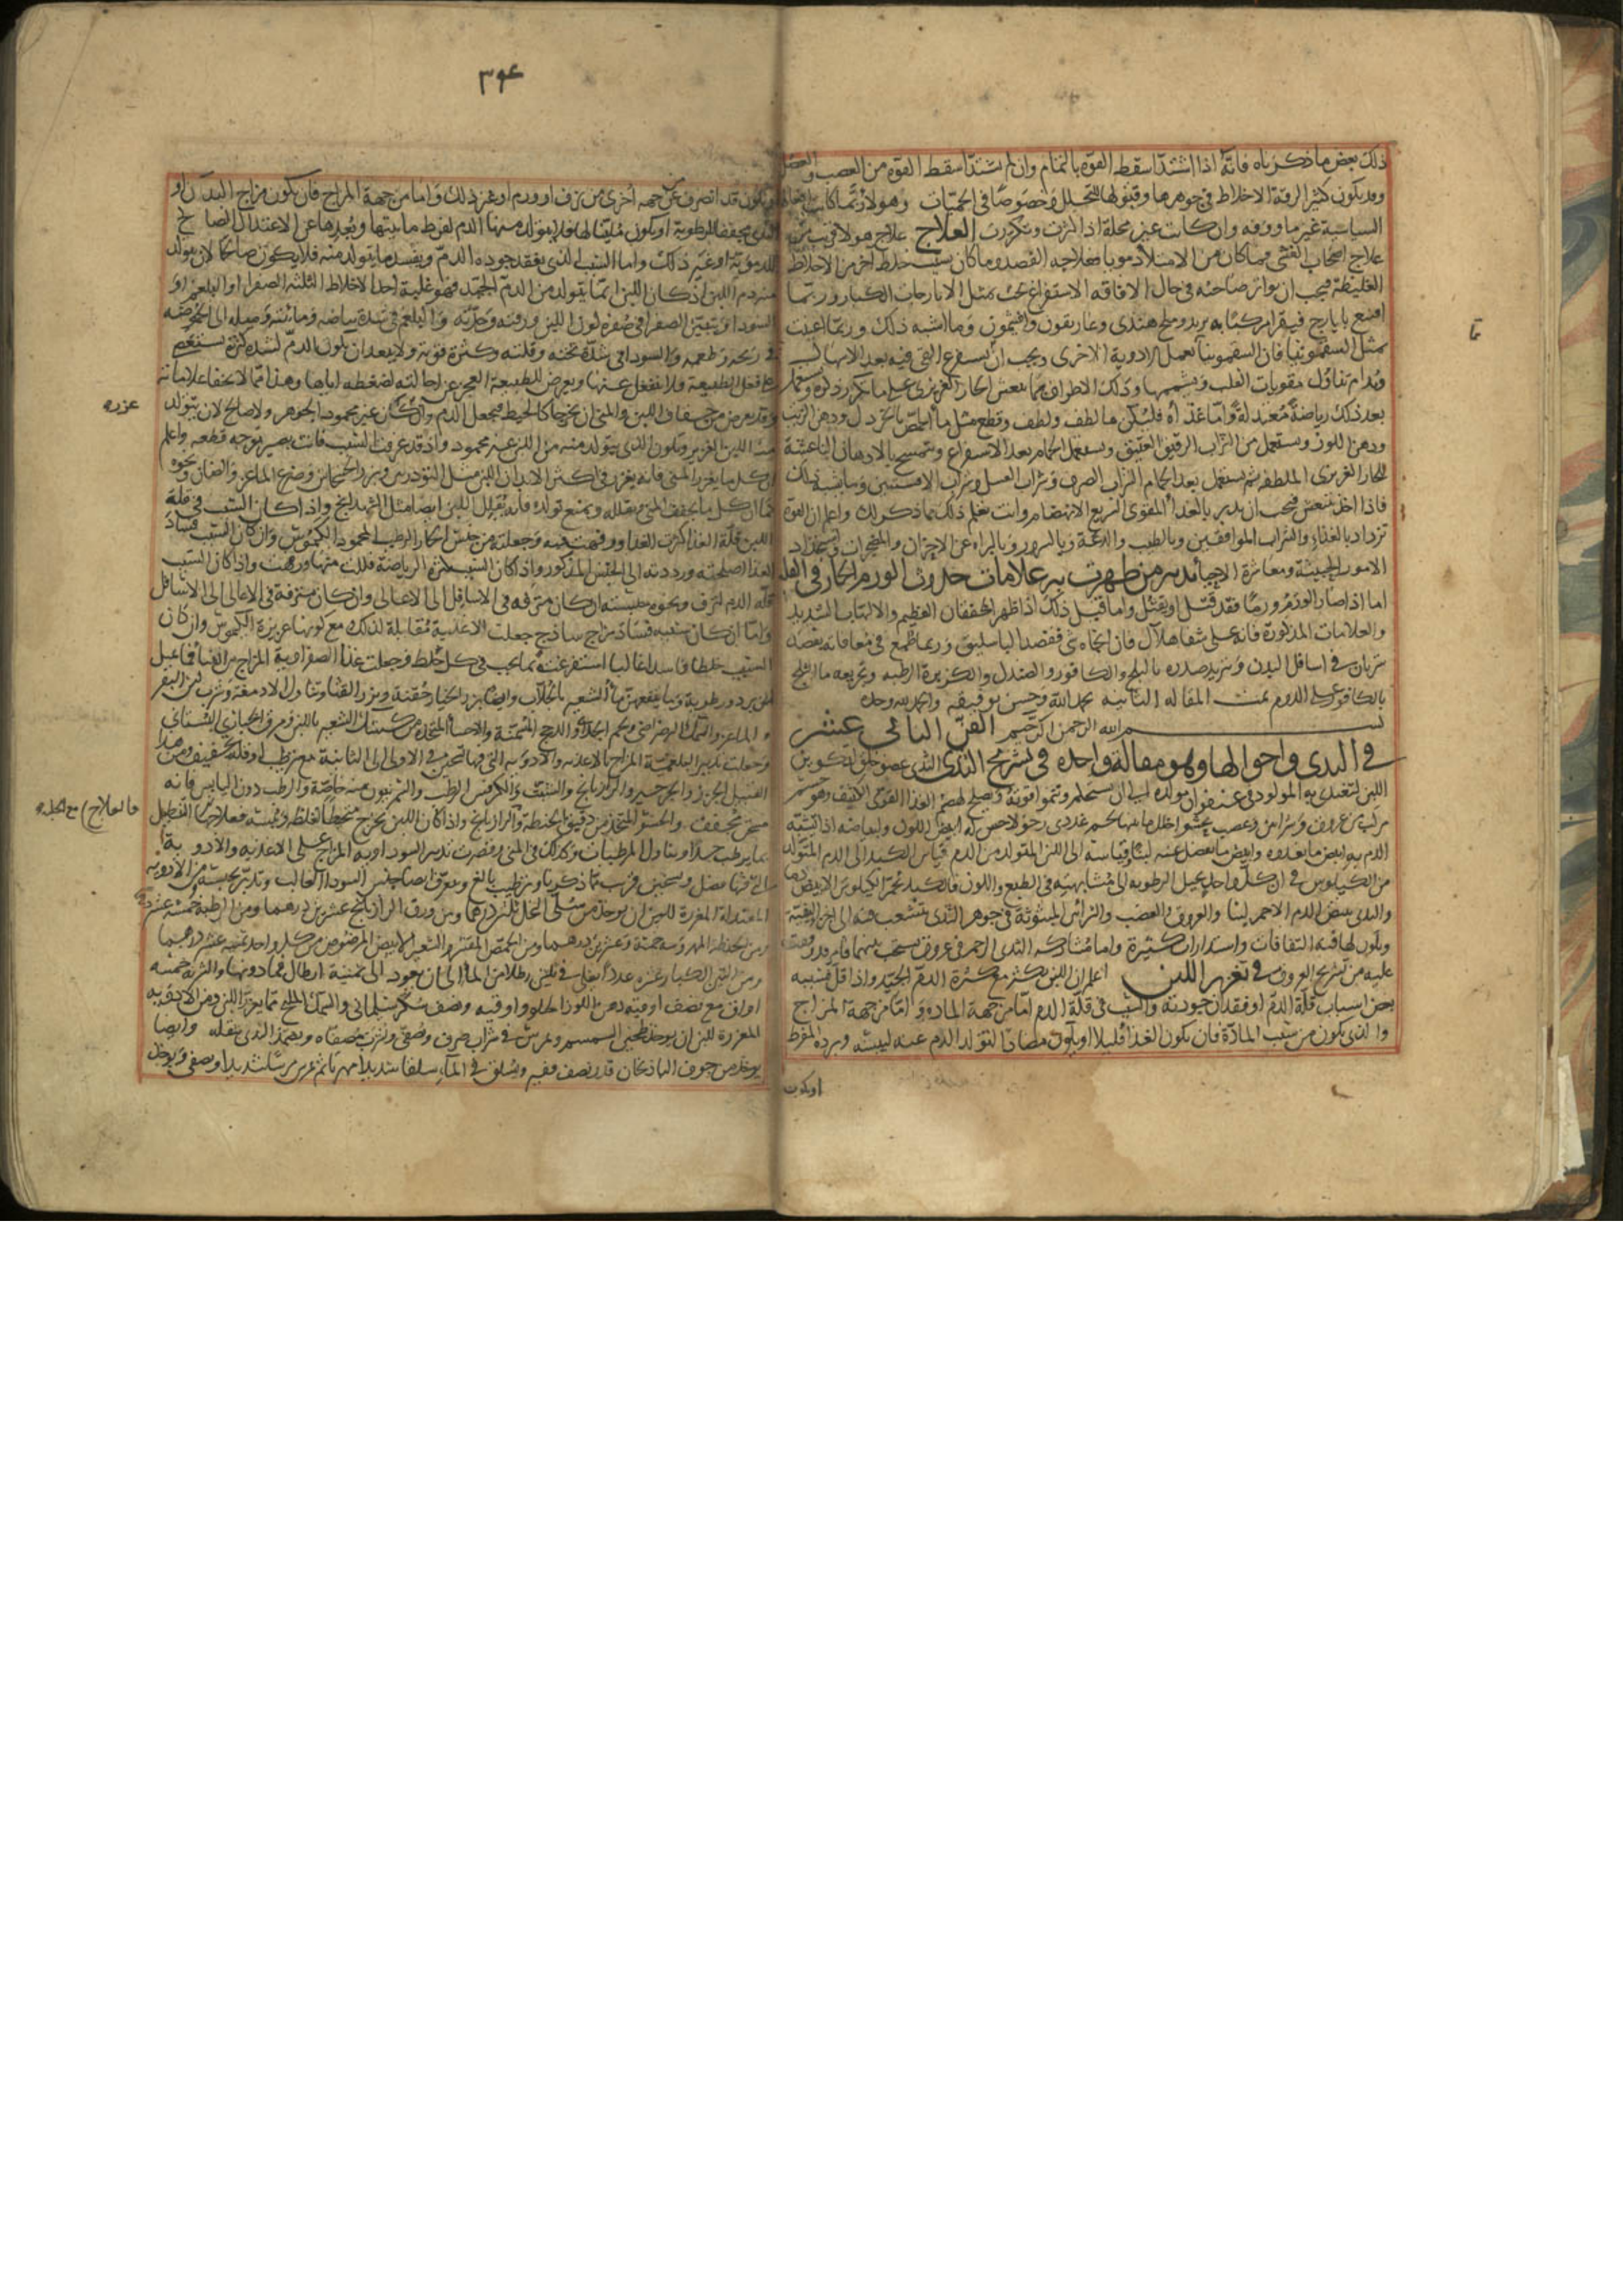 ذلك بعض ما ذكرناه فانه اذا اشتد اسقط القوة بالتمام وان لم يشتد اسقط القوة من العصب والعضل
وقد يكون كثير الرقة الاخلاط في جوهرها وقبولها للتحلل وخصوصا في الحميات وهولاء ربما كانت
السياسة غير ماووفه وان كانت غير محلة اذا انزفت وتكررت العلاج علاج هولاء قريب من
علاج اصحاب الغشي فما كان من الامتلاء دمويا فعلاجه الفصد وما كان سبب خلط اخر من الاخلاط
الغليظة فيجب ان يواتر صاحبه في حال الافاقه الاستفراغ بمثل الايارجات الكبار وربما
اقنع بايارج فيقرا مركبا به تربد وملح هندي وغاريقون وافتيمون وما اشبه ذلك وربما اعينت
بمثل السقمونيا فان السقمونيا تعمل الادوية الاخرى ويجب ان
ويدام تناول مقويات القلب وتشميمها وذلك الاطراف بما ينعش الحار الغريزي على ما تكرر ذكره وتستعمل
بعد ذلك رياضة معتدلة واما غذاه فليكن ما لطف ولطف وقطع مثل ماء الحمص بالخردل ودهن الزيت
ودهن اللوز ويستعمل من الشراب الرقيق العتيق ويستعمل الحمام بعد الاستفراغ ويتمسح بالادهان الناعشة
للحار الغريزي الملطفه ثم يستعمل بعد الحمام الشراب الصرف وشراب العسل وشراب الافسنتين وما يشبه ذلك
فاذا اخذ ينتعش فيجب ان يدبر بالغذاء المقوي السريع الانهضام وانت تعلم ذلك مما ذكر لك واعلم ان القوة
تزداد بالغذاء والشراب الموافقين وبالطيب والدعة وبالسرور وبالبراءه عن الاحزان والضجرات واستجداد
الامور الحبيبة ومعاشرة الاحباء تدبير من ظهرت به علامات حدوث الورم الحار في القلب
اما اذا صار الورم ورما فقد قتل او يقتل واما قبل ذلك اذا ظهر الخفقان العظيم والالتهاب الشديد
والعلامات المذكورة فانه على شفا هلاك فان انجاه شي ففصد الباسليق وربما طمع في معافاته بفصد
شريان في اسافل البدن وتبريد صدره بالثلج والكافور والصندل والكزبرة الرطبه وتجريعه ماء الثلج
بالكافور على الدوام تمت المقالة الثانية بحمد الله وحسن توفيقه والحمد لله وحده
بسم الله الرحمن الرحيم الفن الثاني عشر
في الثدي واحوالها وهو مقالة واحده في تشريح الثدي الثدي عضو خلق لتكوين
اللبن لتغتذي به المولود في عنفوان مولده الى ان يستحكم وتنمو قوته ويصلح لهضم الغذاء القوي الكثيف وهو جسم
مركب من عروق وشرايين وعصب يحشو خلل ما بينها لحم غددي رخو لا حس له ابيض اللون ولبياضه اذا تشبه
الدم به ابيض ما يغذوه وابيض ما ينفصل عنه لبنا وقياسه الى اللبن المتولد من الدم قياس الكبد الى الدم المتولد
من الكيلوس في ان كل واحد يحيل الرطوبه الى مشابهته في الطبع واللون فالكبد يحمر الكيلوس الابيض دما
والثدي يبيض الدم الاحمر لبنا والعروق والعصب والشرائين المبثوثة في جوهر الثدي يتشعب فيه الى اخر القسمة
ويكون لها فيه التفافات واستدارات كثيرة واما مشاركه الثدي الرحم في عروق تستحب بينهما فامر قد وقفت
عليه من تشريح العروق في تغزير اللبن اعلم ان اللبن يكثر مع كثرة الدم الجيد واذا قل فسببه
بعض اسباب قلة الدم او فقدان جودته والسبب في قلة الدم اما من جهة المادة واما من جهة المزاج
والذي يكون من سبب المادة فان يكون الغذاء قليلا او يكون مضادا لتولد الدم عنه ليبسه وبرده المفرط
او يكون
٣٩٤
او يكون قد انصرف عن جهه اخرى من نزف او ورم او غير ذلك واما من جهة المزاج فان يكون مزاج البدن او
الثدي مجففا للرطوبة او يكون لها فلا يتولد منها الدم لفرط مائيتها وبعدها عن الاعتدال الصالح
للدموية او غير ذلك واما السبب الذي يفقد جوده الدم ويفسد ما يتولد منه فلا يكون صالحا لان يتولد
منه دم اللبن اذ كان اللبن انما يتولد من الدم الجيد فهو غلبة احد الاخلاط الثلثه الصفراء او البلغم او
السوداء ويتبين الصفراء في صفرة لون اللبن ورقته وحدته والبلغم في شدة بياضه ومائيته وميله الى الحموضه
في ريحه وطعمه والسوداء في شدة ثخنه وقلته وكثرة قوته ولا يبعد ان يكون الدم لشده كثرته يستعصي
على فعل الطبيعة فلا ينفعل عنها ويعرض للطبيعة العجز عن احالته لضغطه اياها وهذا مما لا يخفى علاماته
وقد يعرض من جفاف اللبن والمني ان يخرجا كالخيط فيجعل الدم وان كان غير محمود الجوهر ولا صالح لان يتولد
منه اللبن الغزير ويكون الذي يتولد منه من اللبن غير محمود واذ قد عرفت السبب فانت بصير بوجه قطعه واعلم
ان كل ما يغزر المني فانه يغزر في اكثر الابدان اللبن مثل التودرين وبزر الخشخاش وضرع الماعز والضان ونحوه
كما ان كل ما يجفف المني ويقلله ويمنع تولده فانه يقلل اللبن ايضا مثل الشهدانج واذا كان السبب في قلة
اللبن قلة الغذاء كثرت الغذاء ورفهت فيه وجعلته من جنس الحار الرطب المحمود الكيموس وان كان السبب فساد
الغذاء اصلحته ورددته الى الجنس المذكور واذا كان السبب كثرة الرياضة قللت منها ورفهت واذا كان السبب
قلة الدم لنزف ونحوه حبسته ان كان منزفه في الاسافل الى الاعالي وان كان منزفة في الاعالي الى الاسافل
واما ان كان سببه فساد مزاج ساذج جعلت الاغذية مقابلة لذلك مع كونها غزيرة الكيموس وان كان
السبب خلطا فاسدا غالبا استفرغته بما يجب في كل خلط وجعلت غذاء الصفراوية المزاج من النساء ما يميل
الى برد ورطوبة ومما ينفعهن ماء الشعير بالجلاب وايضا بزر الخيار حقنة وبزر القثاء وتناول الادمغة وشرب لبن البقر
والماعز والسمك الرضراضي ولحم الجدي والدجج المسمنة والاحساء المتخذة من كشك الشعير باللبن ومرق الخبازي البستاني
وجعلت تدبير البلغمية المزاج بالاغذيه والادويه التي فيها تسخين في الاولى الى الثانية مع ترطيب او قلة تجفيف ومن هذا
القبيل الجزر والجرجير والرازيانج والشبث والكرفس الرطب والسمرنيون منه خاصة والرطب دون اليابس فانه
مسخن مجفف والحسو المتخذ من دقيق الحنطة والرازيانج واذا كان اللبن يخرج متخيطا لغلظه ويبسه فعلاجها التنطيل
بما يرطب جدا وتناول المرطبات وكذلك في المني وقصرت تدبير السوداويه المزاج على الاغذيه والادويه
التي فيها فضل وتسخين قريب مما ذكرنا وترطيب بالغ وتعرف ايضا جنس السوداء الغالب وتدبر بحسبه ومن الادويه
المعتدله المغزرة للبن ان يوخذ من سلى النخل ثلثين درهما ومن ورق الرازيانج عشرين درهما ومن الرطبة خمسة عشر درهما
ومن الحنطه المهروسه خمسة وعشرين درهما ومن الحمص المقشر والشعير الابيض المرضوض من كل واحد ثمنيه عشر درهما
ومن التين الكبار عشره عددا يغلى في ثلثين رطلا من الماء الى ان يعود الى ثمنية ارطال فما دونها والشربة خمسه
اواق مع نصف اوقيه دهن اللوز الحلو واوقيه ونصف سكر سليماني والسمك المالح مما يغزر اللبن ومن الادويه
المغزرة للبن ان يوخذ طحين السمسم ويمرس في شراب صرف وصفي وتشرب مصفاه ويضمد الثدي بثفله وايضا
يوخذ من جوف الباذنجان قدر نصف قفيز ويسلق في الماء سلقا شديدا مهريا ثم يمرس مرسا شديدا ويصفى ويوخذ
عزره